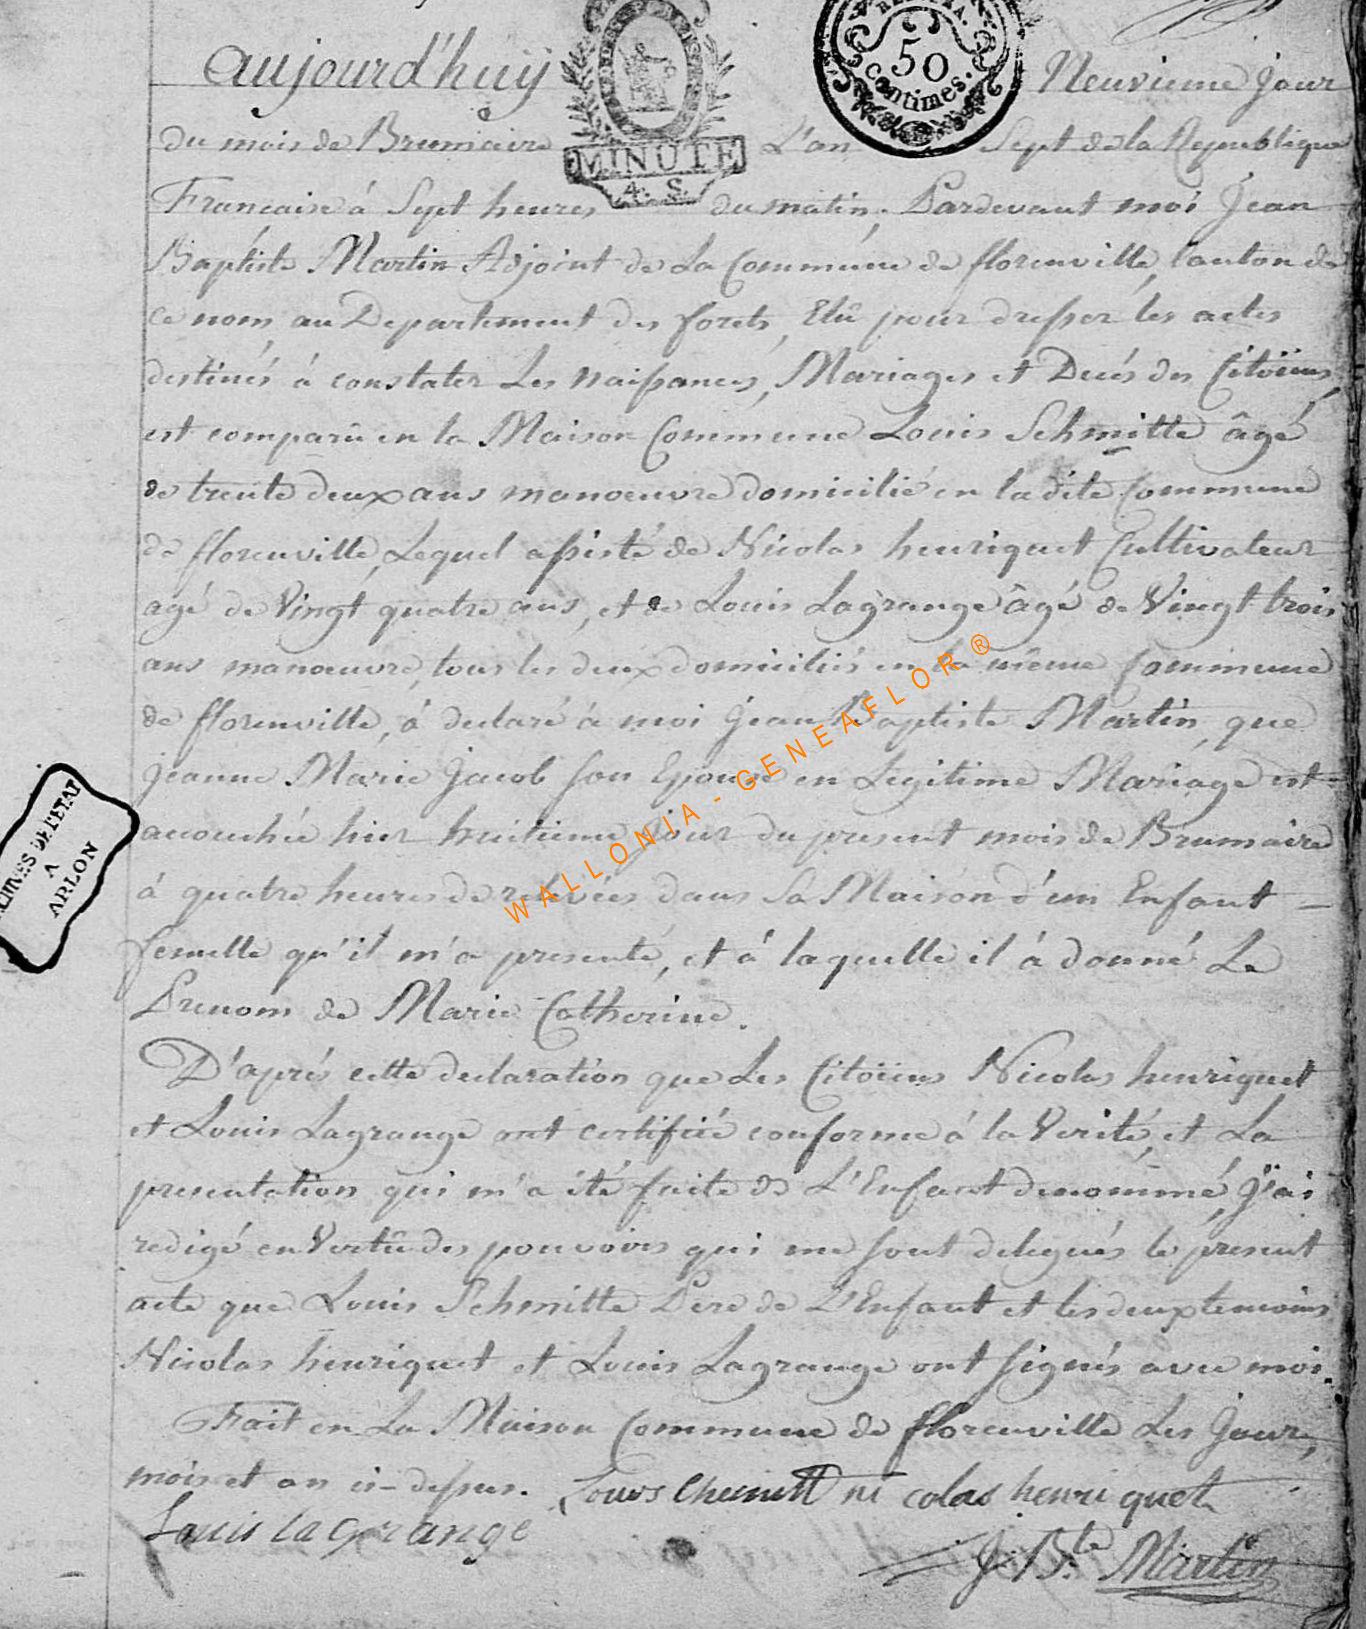 aujourd'huÿ Neuvieme Jour
MINUTE
A. S.
50
centimes.
du mois de Brumaire L'an Sept de la Republique
Francaise à Sept heures du matin, Pardevant moi Jean
Baptiste Martin Adjoint de La Commune de florenville, Canton de
ce nom au Departement des forets, Elû pour dresser les actes
destinés à constater Les Naissances, Mariages et Decés des Citoïens,
est comparû en la Maison Commune Louis Schmitte âgé
de trente deux ans manoeuvre domicilié en la dite Commune
de florenville, Lequel assisté de Nicolas henriquet Cultivateur
agé de Vingt quatre ans, et de Louis Lagrange âgé de Vingt trois
ans manoeuvre, tous les deux domiciliés en la même Commune
de florenville, à declaré à moi Jean Baptiste Martin, que
Jeanne Marie Jacob son Epouse en Legitime Mariage est
acouchée hier huitieme jour du present mois de Brumaire
à quatre heures de relevées dans Sa Maison d'un Enfant
femelle qu'il m'a presenté, et à laquelle il à donné Le
Prenom de Marie Catherine.
D'aprés cette declaration que Les Citoïens Nicolas henriquet
et Louis Lagrange ont certifié conforme à la Verité, et La
presentation qui m'a été faite de L'Enfant denommé, J'ai
redigé en Vertû des pouvoirs qui me sont delegués le present
acte que Louis Schmitte Pere de L'Enfant et les deux temoins
Nicolas henriquet et Louis Lagrange ont signés avec moi.
Fait en La Maison Commune de florenville Les Jour,
mois et an ci-dessus. Louis Chemitt ni colas henri quet
Louis la Grange
J. B.te Martin
ARCHIVES DE L'ETAT
A
ARLON
WALLONIA - GENEAFLOR ®